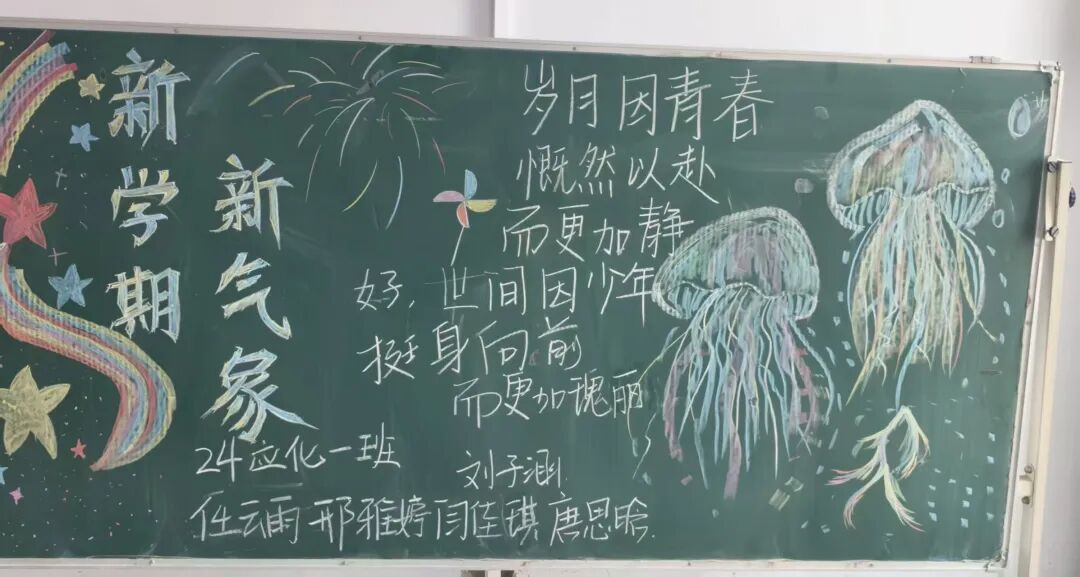 新学期
新气象
岁月因青春
慨然以赴
而更加静
好，世间因少年
挺身向前
而更加瑰丽
24应化一班
刘子涵
任云雨 邢雅婷 闫佳琪 唐思晗